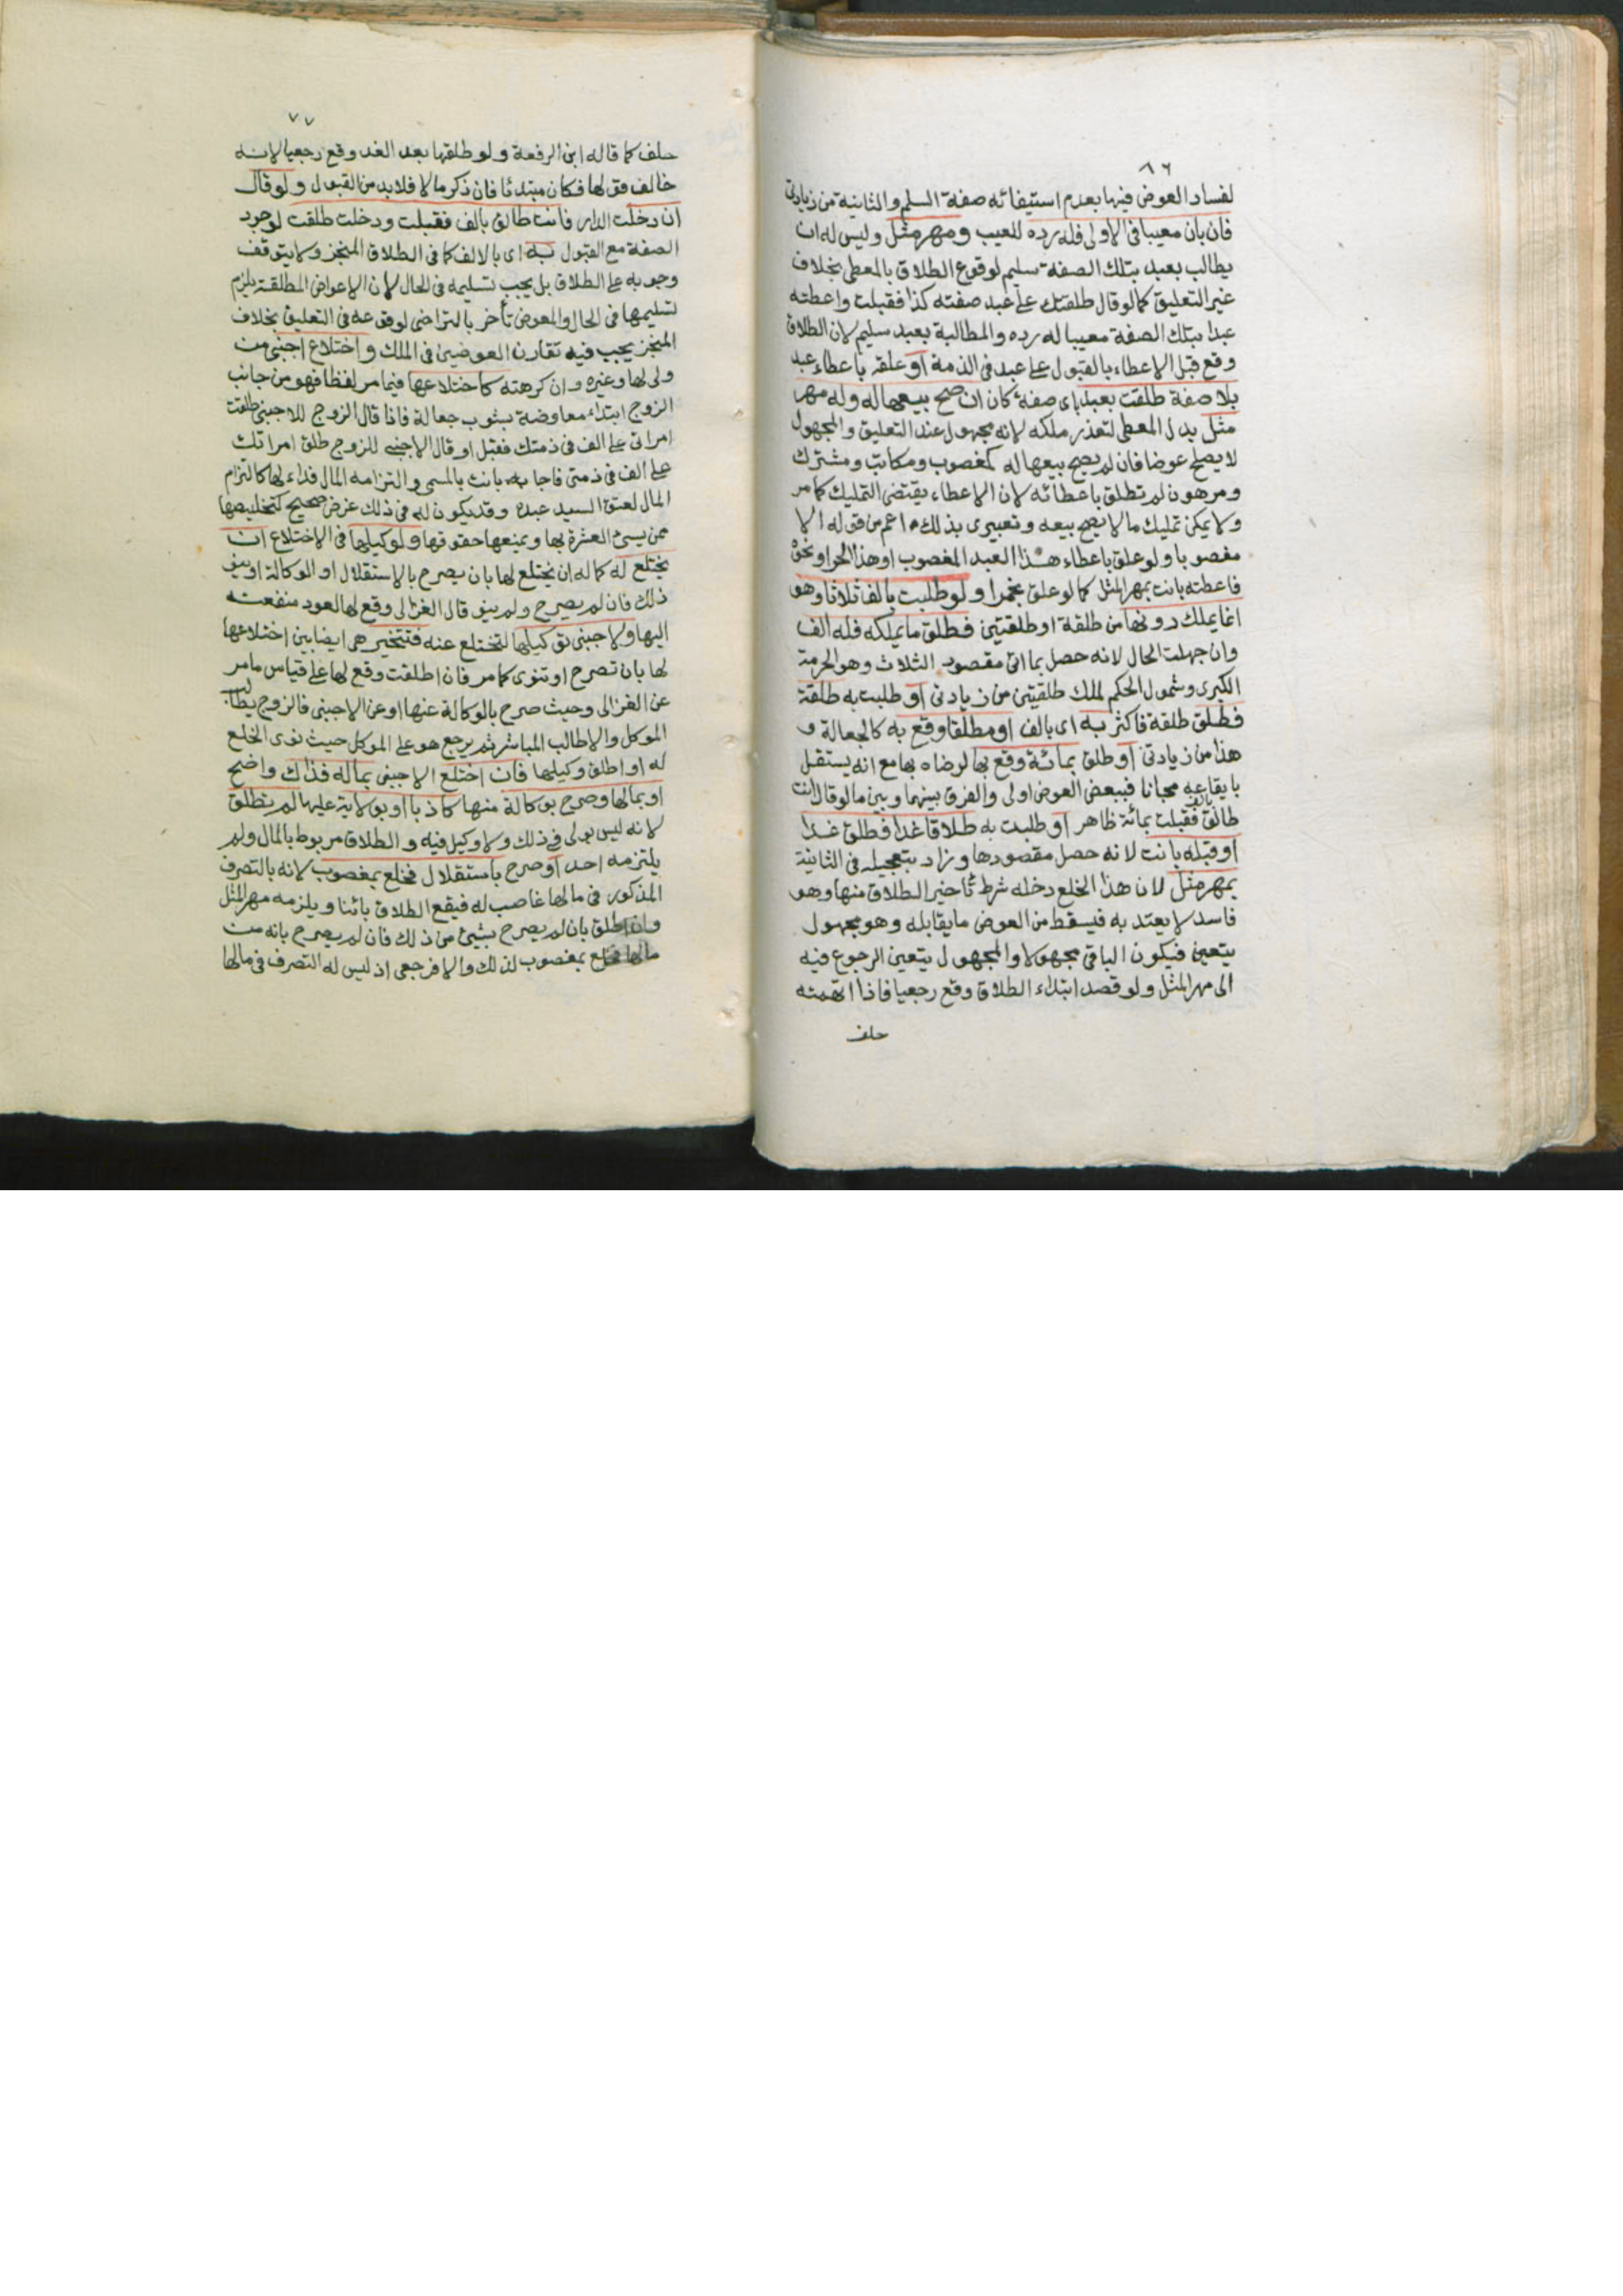 ٨٦
لفساد العوض فيها بعدم استيفائه صفة السلم والثانية من زيادتي
فان بان معيبا في الاولى فله رده للعيب ومهر مثل وليس له ان
يطالب بعبد بتلك الصفة سليم لوقوع الطلاق بالمعطى بخلاف
غير التعليق كما لو قال طلقتك على عبد صفته كذا فقبلت واعطته
عبدا بتلك الصفة معيبا له رده والمطالبة بعبد سليم لان الطلاق
وقع قبل الاعطاء بالقبول على عبد في الذمة او علقه باعطاء عبد
بلا صفة طلقت بعبد باى صفة كان ان صح بيعها له وله مهر
مثل بدل المعطى لتعذر ملكه لانه مجهول عند التعليق والمجهول
لا يصلح عوضا فان لم يصح بيعها له كمغصوب ومكاتب ومشترك
ومرهون لم تطلق باعطائه لان الاعطاء يقتضى التمليك كما مر
ولا يمكن تمليك ما لا يصح بيعه وتعبيرى بذلك اعم من قوله الا
مغصوبا ولو علق باعطاء هذا العبد المغصوب او هذا الحر او نحوه
فاعطته بانت بمهر المثل كما لو علق بخمر او لو طلبت بالف ثلاثا وهو
انما يملك دونها من طلقة او طلقتين فطلق ما يملكه فله الف
وان جهلت الحال لانه حصل بما اتى مقصود الثلاث وهو الحرمة
الكبرى وشمول الحكم لملك طلقتين من زيادتى او طلبت به طلقة
فطلق طلقة فاكثر به اى بالف او مطلقا وقع به كالجعالة و
هذا من زيادتى او طلق بمائة وقع بها لرضاه بها مع انه يستقل
بايقاعه مجانا فببعض العوض اولى والفرق بينهما وبين ما لو قال انت
طالق بالف فقبلت بمائة ظاهر او طلبت به طلاقا غدا فطلق غدا
او قبله بانت لانه حصل مقصودها وزاد بتعجيله في الثانية
بمهر مثل لان هذا الخلع دخله شرط تاخير الطلاق منها وهو
فاسد لا يعتد به فيسقط من العوض ما يقابله وهو مجهول
يتعين فيكون الباقى مجهولا والمجهول يتعين الرجوع فيه
الى مهر المثل ولو قصد ابتداء الطلاق وقع رجعيا فاذا اتهمته
حلف
٧٧
حلف كما قاله ابن الرفعة ولو طلقها بعد الغد وقع رجعيا لانه
خالف قولها فكان مبتدئا فان ذكر مالا فلا بد من القبول ولو قال
ان دخلت الدار فانت طالق بالف فقبلت ودخلت طلقت لوجود
الصفة مع القبول به اى بالالف كما في الطلاق المنجز ولا يتوقف
وجوبه على الطلاق بل يجب تسليمه في الحال لان الاعواض المطلقة يلزم
تسليمها في الحال والمعوض تأخر بالتراضى لوقوعه في التعليق بخلاف
المنجز يجب فيه تقارن العوضين في الملك واختلاع اجنبى من
ولى لها وغيره وان كرهته كاختلاعها فيما مر لفظا فهو من جانب
الزوج ابتداء معاوضة بشوب جعالة فاذا قال الزوج للاجنبى طلقت
امراتى على الف في ذمتك فقبل او قال الاجنبى للزوج طلق امراتك
على الف في ذمتى فاجابه بانت بالمسمى والتزامه المال فداء لها كالتزام
المال لعتق السيد عبده وقد يكون له في ذلك غرض صحيح كتخليصها
ممن يسئ العشرة بها ويمنعها حقوقها ولوكيلها في الاختلاع ان
يختلع له كما له ان يختلع لها بان يصرح بالاستقلال او الوكالة او ينوى
ذلك فان لم يصرح ولم ينو قال الغزالى وقع لها لعود منفعته
اليها ولاجنبى توكيلها لتختلع عنه فتتخير هى ايضا بين اختلاعها
لها بان تصرح او تنوى كما مر فان اطلقت وقع لها على قياس ما مر
عن الغزالى وحيث صرح بالوكالة عنها او عن الاجنبى فالزوج يطالب
الموكل والا طالب المباشر ثم يرجع هو على الموكل حيث نوى الخلع
له او اطلق وكيلها فان اختلع الاجنبى بماله فذاك واضح
او بمالها وصرح بوكالة منها كاذبا او بولاية عليها لم تطلق
لانه ليس بولى في ذلك ولا وكيل فيه والطلاق مربوط بالمال ولم
يلتزمه احد او صرح باستقلال فخلع بمغصوب لانه بالتصرف
المذكور في مالها غاصب له فيقع الطلاق بائنا ويلزمه مهر المثل
وان اطلق بان لم يصرح بشيئ من ذلك فان لم يصرح بانه من
مالها فخلع بمغصوب لذلك والا فرجعى اذ ليس له التصرف في مالها